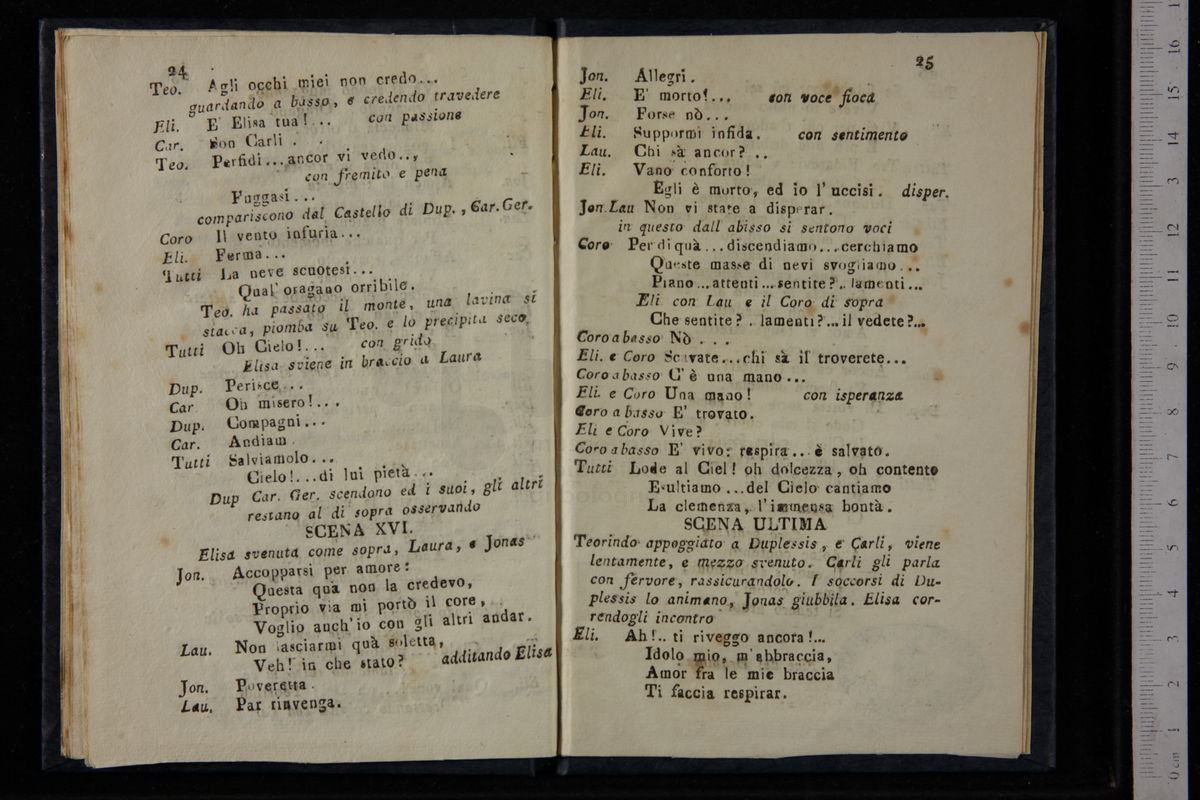 24
Teo. Agli occhi miei non credo...
guardando a basso, e credendo travedere
Eli. E' Elisa tua!... con passione
Car. Son Carli . . .
Teo. Perfidi...ancor vi vedo...
con fremito e pena
Fuggasi...
compariscono dal Castello di Dup., Car. Ger.
Coro Il vento infuria...
Eli. Ferma...
Tutti La neve scuotesi...
Qual' oragano orribile.
Teo. ha passato il monte, una lavina si
stacca, piomba su Teo. e lo precipita seco.
Tutti Oh Cielo!... con grido
Elisa sviene in braccio a Laura
Dup. Perisce...
Car Oh misero!...
Dup. Compagni...
Car. Andiam.
Tutti Salviamolo...
Cielo!...di lui pietà...
Dup Car. Ger. scendono ed i suoi, gli altri
restano al di sopra osservando
SCENA XVI.
Elisa svenuta come sopra, Laura, e Jonas
Jon. Accopparsi per amore:
Questa quà non la credevo,
Proprio via mi portò il core,
Voglio anch'io con gli altri andar.
Lau. Non lasciarmi quà soletta,
Veh! in che stato? additando Elisa
Jon. Poveretta.
Lau. Par rinvenga.
25
Jon. Allegri.
Eli. E' morto!... con voce fioca
Jon. Forse nò...
Eli. Suppormi infida. con sentimento
Lau. Chi sà ancor? ..
Eli. Vano conforto!
Egli è morto, ed io l'uccisi. disper.
Jon. Lau Non vi state a disperar.
in questo dall abisso si sentono voci
Coro Per di quà...discendiamo...cerchiamo
Queste masse di nevi svogliamo...
Piano...attenti...sentite?.. lamenti...
Eli con Lau e il Coro di sopra
Che sentite? . lamenti?...il vedete?...
Coro a basso Nò . . .
Eli. e Coro Scavate...chi sà il troverete...
Coro a basso C' è una mano...
Eli. e Coro Una mano! con isperanza
Coro a basso E' trovato.
Eli e Coro Vive?
Coro a basso E' vivo: respira.. è salvato.
Tutti Lode al Ciel! oh dolcezza, oh contento
Esultiamo...del Cielo cantiamo
La clemenza, l'immensa bontà.
SCENA ULTIMA
Teorindo appoggiato a Duplessis, e Carli, viene
lentamente, e mezzo svenuto. Carli gli parla
con fervore, rassicurandolo. I soccorsi di Du-
plessis lo animano, Jonas giubbila. Elisa cor-
rendogli incontro
Eli. Ah!.. ti riveggo ancora!...
Idolo mio, m'abbraccia,
Amor fra le mie braccia
Ti faccia respirar.
0 cm 1 2 3 4 5 6 7 8 9 10 11 12 13 14 15 16